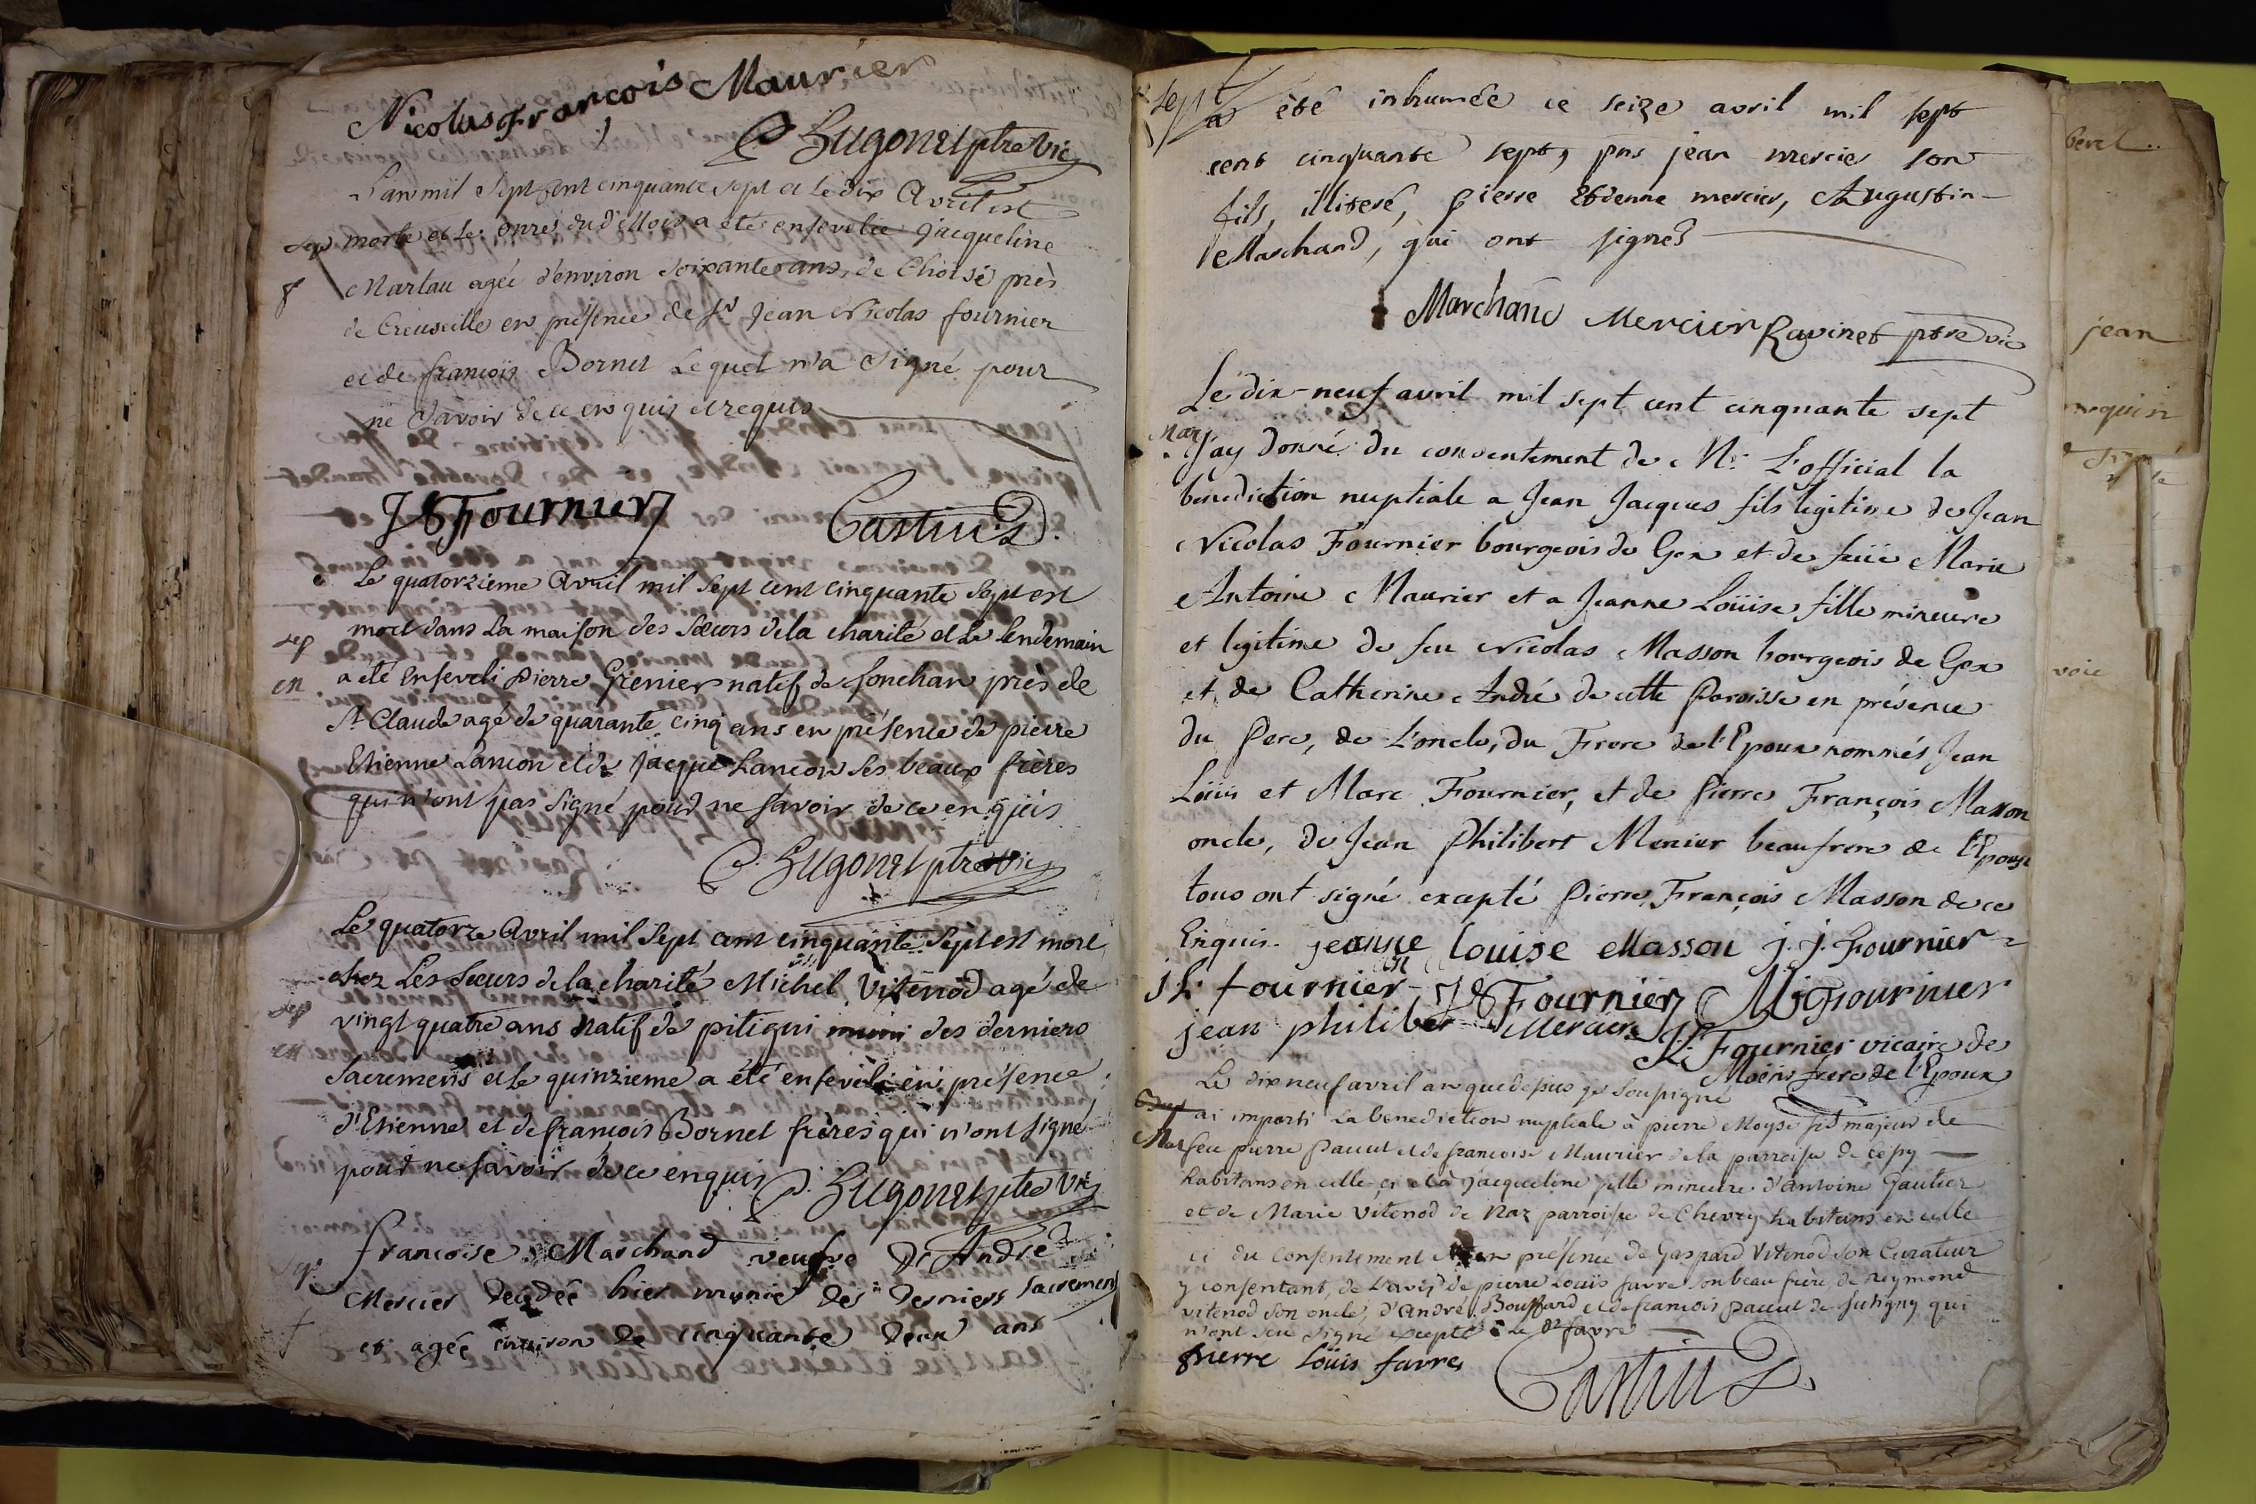 Nicolas françois Maurier
C. Hugonet ptre vic
L'an mil sept cent cinquante sept et le dix Avril est
sep morte et le onze du d. Mois a été ensevelie jacqueline
f Martau agée d'environ soixante ans, de Choisé près
de Creuseille en présence de Sr Jean Nicolas fournier
et de françois Bornet Lequel n'a signé pour
ne savoir de ce enquis et requis
JN Fournier Castin
Le quatorzieme Avril mil sept cent cinquante sept est
mort dans La maison des Sœurs de la charité et Le lendemain
sep
en a été Enseveli pierre Grenier natif de Lonchan près de
St Claude agé de quarante cinq ans en présence de pierre
Etienne Lançon et de Jacque Lançon Ses beaux frères
qui n'ont pas Signé pour ne savoir de ce enquis
C. Hugonet ptre vic
Le quatorze Avril mil sept cent cinquante Sept est mort
chez Les Sœurs de la charité Michel Vitenod agé de
sep vingt quatre ans natif de pitigni muni des derniers
en
Sacremens et le quinzieme a été enseveli en présence
d'Etienne et de françois Bornet frères qui n'ont signé
pour ne savoir de ce enquis C. Hugonet ptre Vic
sep francoise Marchand veufve D'André
Mercier decedée hier munie des derniers sacremens
et agée environ de cinquante deux ans
sept
a été inhumée ce seize avril mil sept
cent cinquante sept, pns jean mercier son
fils, illiteré, pierre Etienne mercier, Augustin
Marchand, qui ont signés
Marchand Mercier Ravinet ptre vic
Le dix-neuf avril mil sept cent cinquante sept
Mar J'ay donné du consentement de Mr. L'official la
benediction nuptiale a Jean Jacques fils legitime de Jean
Nicolas Fournier bourgeois de Gex et de feüe Marie
Antoine Maurier et a Jeanne Loüise fille mineure
et legitime de feu Nicolas Masson bourgeois de Gex
et de Catherine André de cette Paroisse en présence
du Pere, de L'oncle, du Frere de l'Epoux nommés Jean
Loüis et Marc Fournier, et de Pierre François Masson
oncle, de Jean Philibert Mercier beaufrere de l'Epouse
tous ont signé excepté Pierre François Masson de ce
Enquis. jeanne louise Masson j. j. Fournier
j L. fournier JN Fournier M Fournier
jean philiber Mercier
Fournier vicaire de
Moëns frere de l'Epoux
Le dix neuf avril an que dessus je soussigné
ai imparti La benediction nuptiale à pierre Moyse fils majeur de
Mar feu pierre paccut et de françoise Maurier de la parroisse de Cessy
habitans en celle ci et à jacqueline fille mineure d'antoine Gautier
et de Marie Vitenod de Naz parroisse de Chevry habitans en celle
ci du consentement et en présence de Gaspard Vitenod son Curateur
y consentant, de L'avis de pierre Louis favre son beau frère de Reymond
vitenod son oncle, d'andré Bouffard et de francois paccut de Sutigny qui
n'ont sçu signé excepté Le dt favre
pierre Loüis favre
Castin
berel
jean
voie